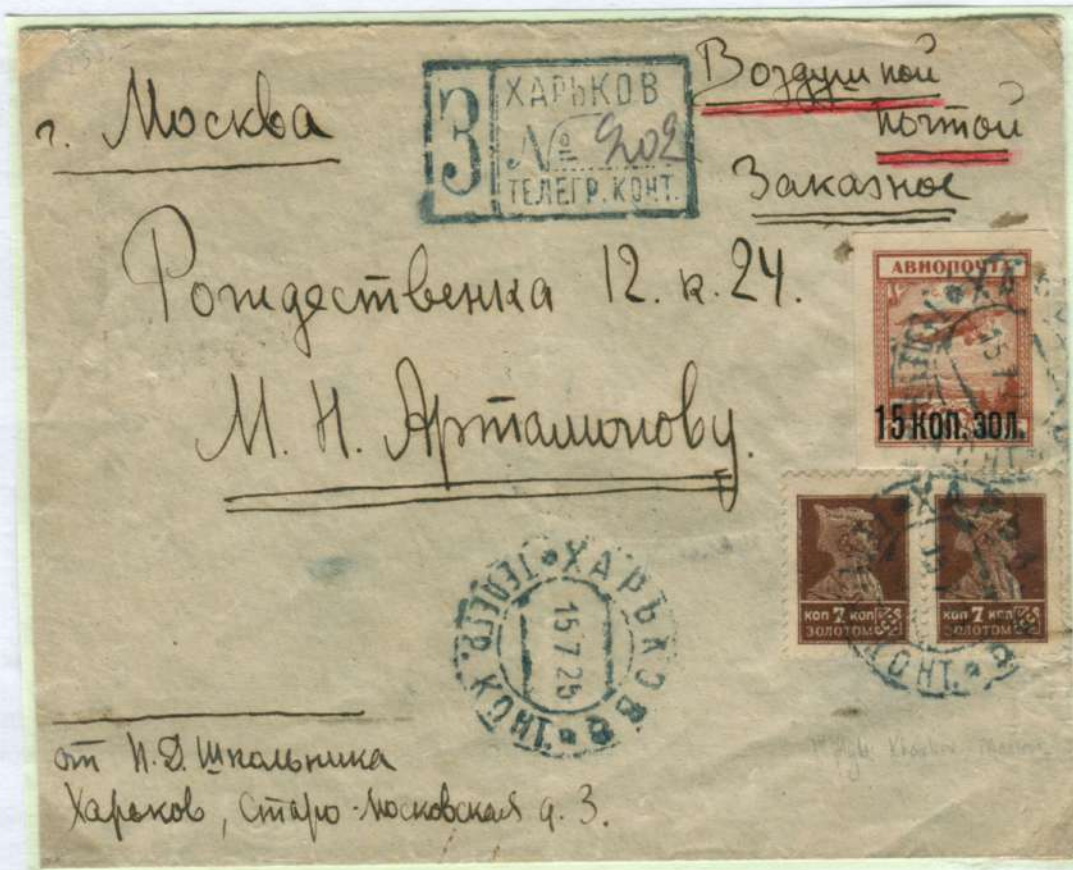 г. Москва
З
ХАРЬКОВ
№ 202
ТЕЛЕГР. КОНТ.
Воздушной
почтой
Заказное
Рождественка 12. к. 24.
М. Н. Артамонову.
АВИОПОЧТА
15 КОП. ЗОЛ.
КОП 7 КОП
ЗОЛОТОМ
КОП 7 КОП
ЗОЛОТОМ
ХАРЬКОВ
15 7 25
ТЕЛЕГР. КОНТ.
от И. Д. Школьника
Харьков, Старо-Московская д. 3.